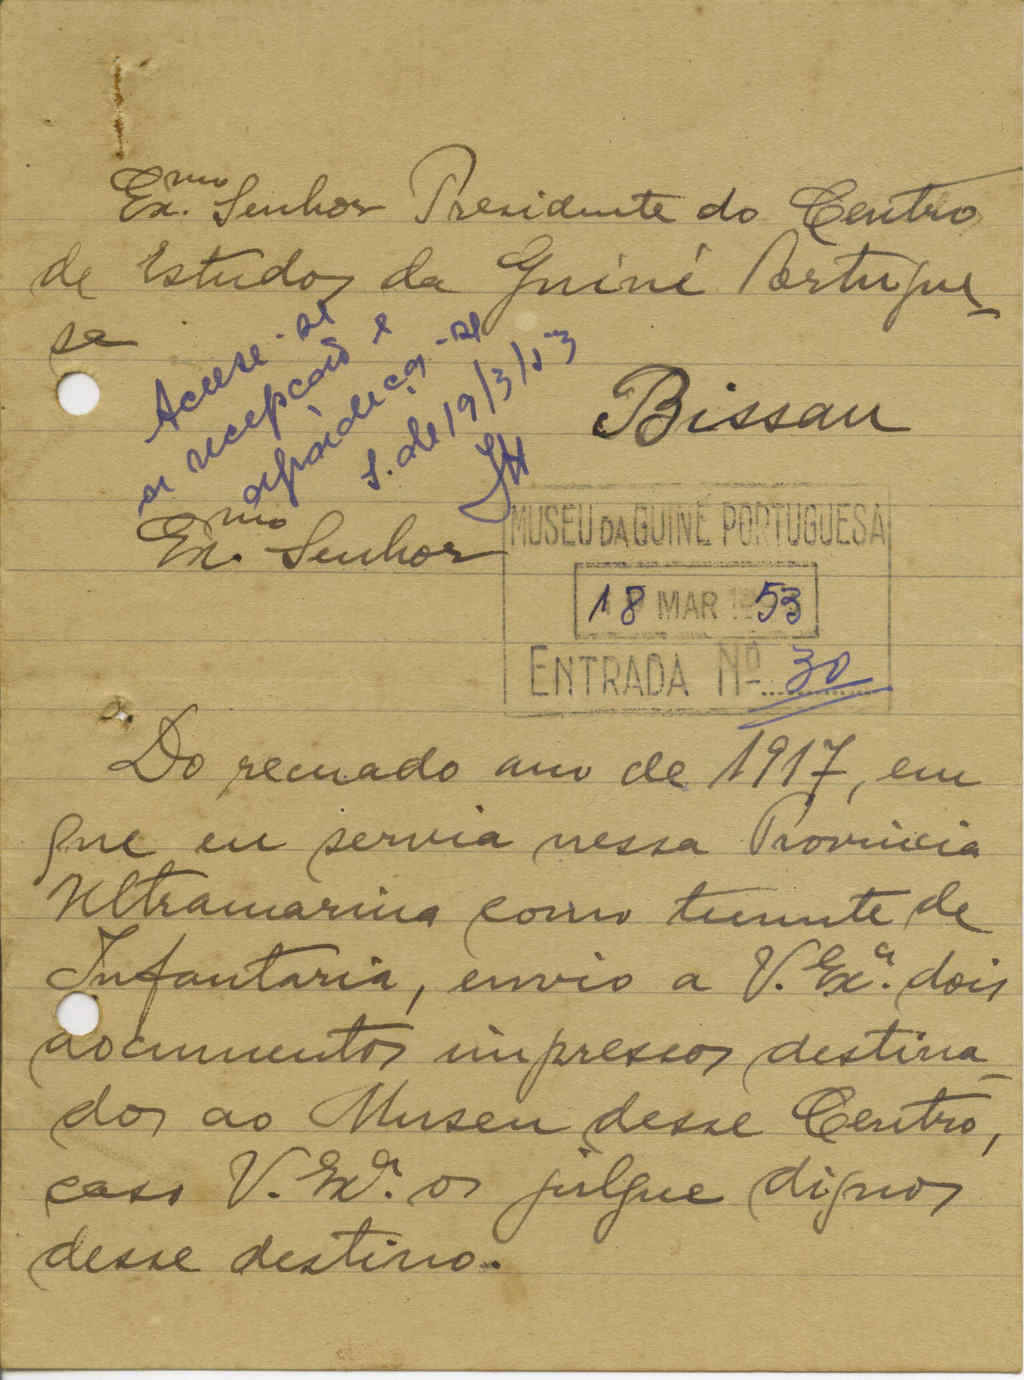 Ex.mo Senhor Presidente do Centro
de Estudos da Guiné Portugue-
sa
Acuse-se
a recepção e
agradeça-se
S. de 19/3/53
Bissau
Ex.mo Senhor
MUSEU DA GUINÉ PORTUGUESA
18 MAR 1953
ENTRADA Nº 30
Do recuado ano de 1917, em
que eu servia nessa Provincia
Ultramarina como tenente de
Infantaria, envio a V. Ex.ª dois
documentos impressos destina-
dos ao Museu desse Centro,
caso V. Ex.ª os julgue dignos
desse destino.